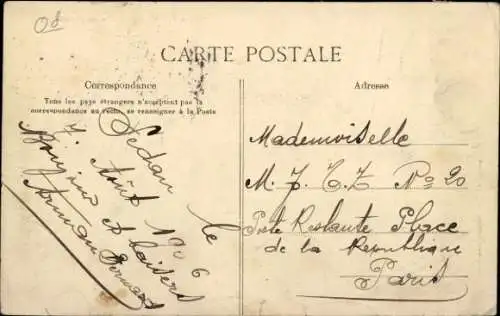 Od
CARTE POSTALE
Correspondance
Tous les pays étrangers n'acceptent pas la
correspondance au recto, se renseigner à la Poste
Sedan le
Août 1906
Bonjour et baisers
Adresse
Mademoiselle
M. J. C. Z No 20
Poste Restante Place
de la Republique
Paris